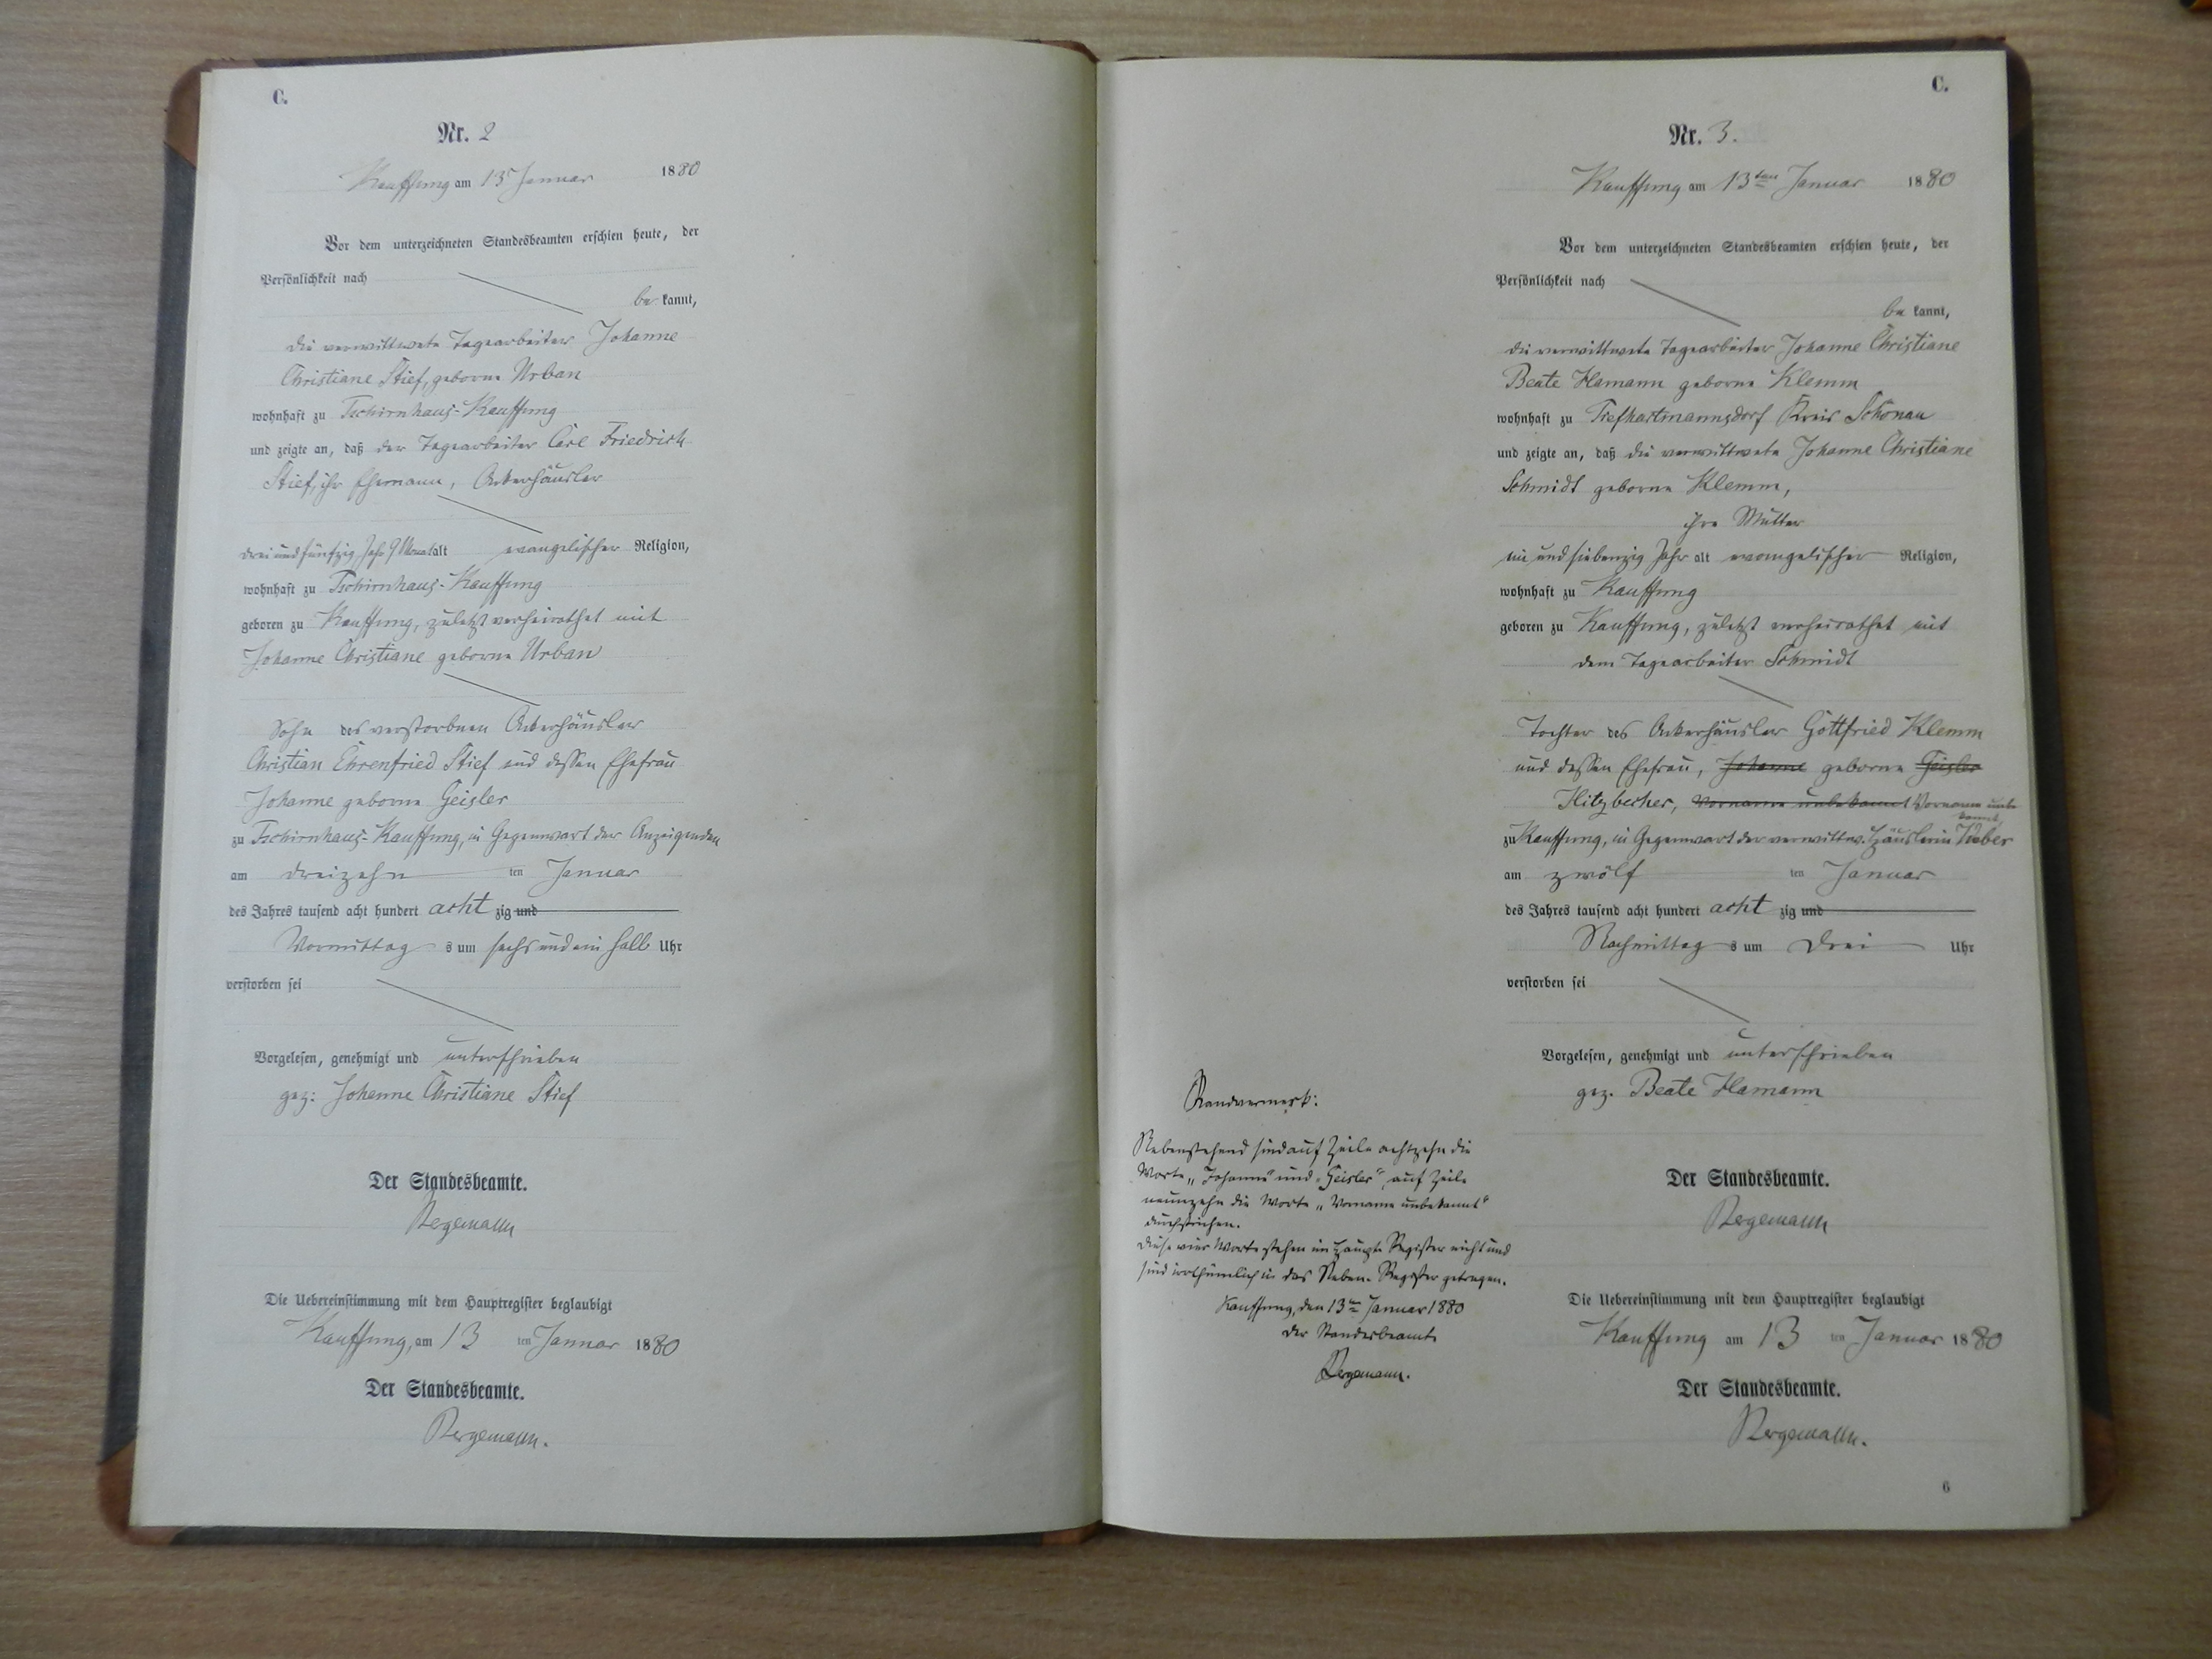 C.
Nr. 2
Kauffung am 13 Januar 1880
Vor dem unterzeichneten Standesbeamten erschien heute, der
Persönlichkeit nach
be kannt,
die verwittwete Tagearbeiter Johanne
Christiane Stief, geborne Urban
wohnhaft zu Tschirnhaus-Kauffung
und zeigte an, daß der Tagearbeiter Carl Friedrich
Stief, ihr Ehemann, Ackerhäusler
drei und fünfzig Jahr 9 Monat alt evangelischer Religion,
wohnhaft zu Tschirnhaus-Kauffung
geboren zu Kauffung, zuletzt verheirathet mit
Johanne Christiane geborne Urban
Sohn des verstorbnen Ackerhäusler
Christian Ehrenfried Stief und dessen Ehefrau
Johanne geborne Geisler
zu Tschirnhaus-Kauffung, in Gegenwart der Anzeigenden
am dreizehn ten Januar
des Jahres tausend acht hundert acht zig und
Vormittag s um sechs und ein halb Uhr
verstorben sei
Vorgelesen, genehmigt und unterschrieben
gez: Johanne Christiane Stief
Der Standesbeamte.
Bergemann
Die Uebereinstimmung mit dem Hauptregister beglaubigt
Kauffung, am 13 ten Januar 1880
Der Standesbeamte.
Bergemann.
C.
Nr. 3.
Kauffung am 13ten Januar 1880
Vor dem unterzeichneten Standesbeamten erschien heute, der
Persönlichkeit nach
be kannt,
die verwittwete Tagearbeiter Johanne Christiane
Beate Hamann geborne Klemm
wohnhaft zu Tiefhartmannsdorf Kreis Schönau
und zeigte an, daß die verwittwete Johanne Christiane
Schmidt geborne Klemm,
ihre Mutter
ein und siebenzig Jahr alt evangelischer Religion,
wohnhaft zu Kauffung
geboren zu Kauffung, zuletzt verheirathet mit
dem Tagearbeiter Schmidt
Tochter des Ackerhäusler Gottfried Klemm
und dessen Ehefrau, Johanne geborne Geisler
Hitzbecher, Vorname unbekannt Vorname unbe
kannt,
zu Kauffung, in Gegenwart der verwittw. Häuslerin Weber
am zwölf ten Januar
des Jahres tausend acht hundert acht zig und
Nachmittag s um drei Uhr
verstorben sei
Vorgelesen, genehmigt und unterschrieben
gez. Beate Hamann
Der Standesbeamte.
Bergemann
Die Uebereinstimmung mit dem Hauptregister beglaubigt
Kauffung am 13 ten Januar 1880
Der Standesbeamte.
Bergemann.
6
Randvermerk:
Nebenstehend sind auf Zeile achtzehn die
Worte „Johanne" und „Geisler", auf Zeile
neunzehn die Worte „Vorname unbekannt"
durchstrichen.
Diese vier Worte stehen im Haupt-Register nicht und
sind irrthümlich in das Neben-Register getragen.
Kauffung, den 13ten Januar 1880
Der Standesbeamte
Bergemann.